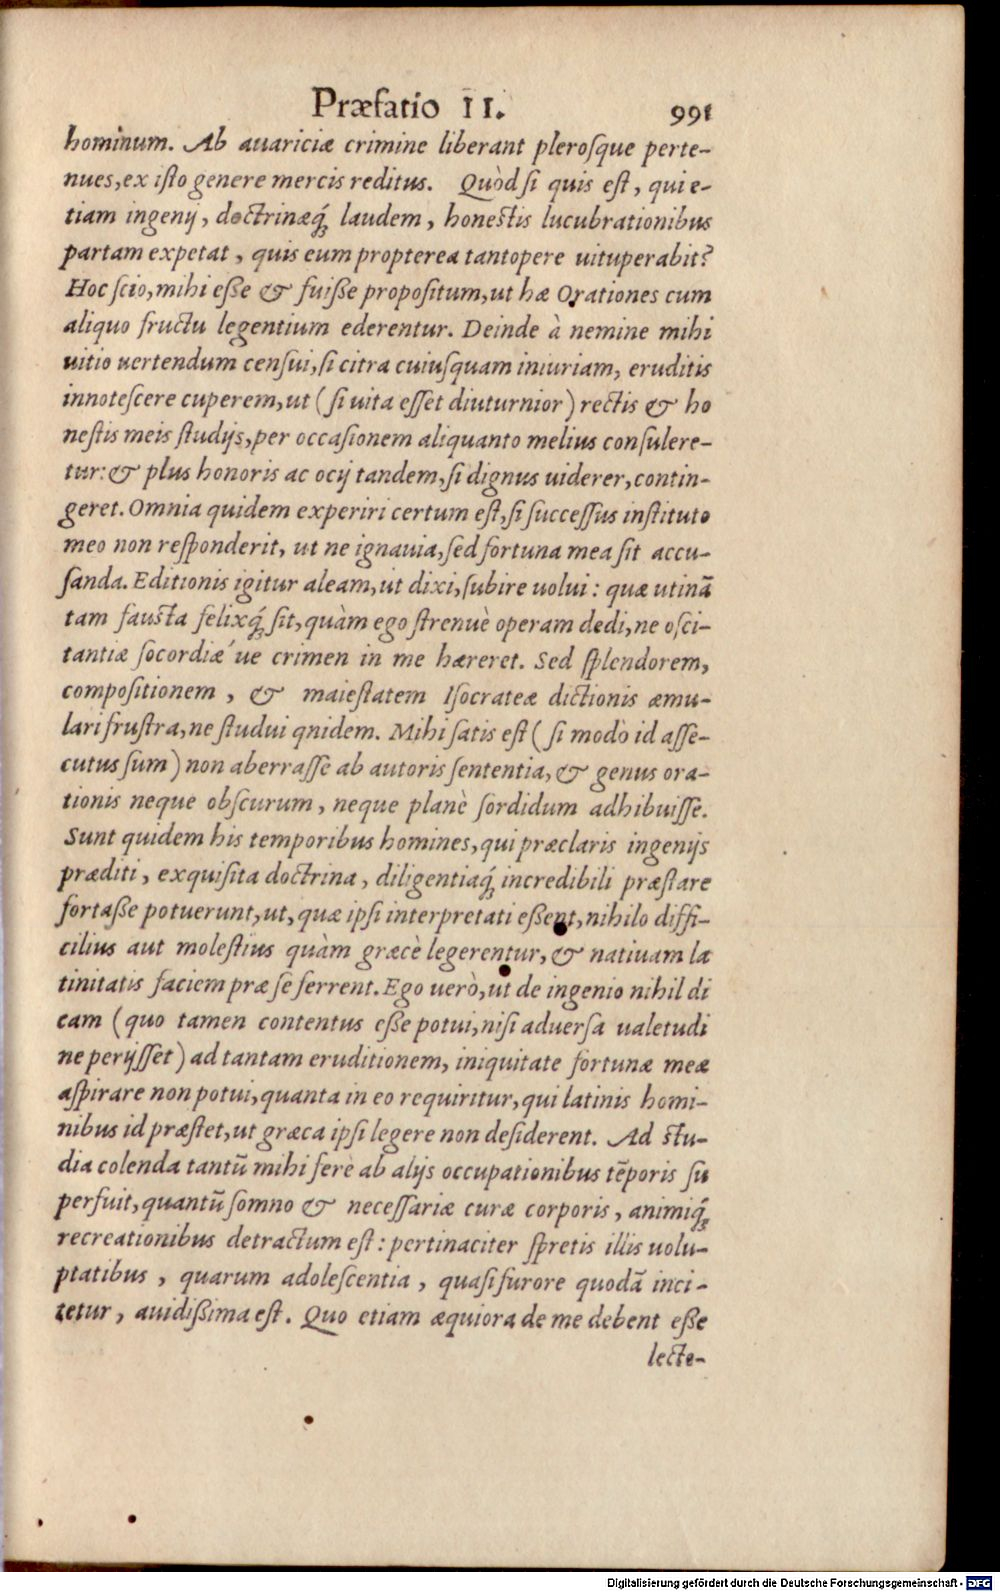 Præfatio II. 991
hominum. Ab auariciæ crimine liberant pleroſque perte-
nues, ex iſto genere mercis reditus. Quòd ſi quis eſt, qui e-
tiam ingenij, doctrinæq́; laudem, honeſtis lucubrationibus
partam expetat, quis eum propterea tantopere uituperabit?
Hoc ſcio, mihi eſſe & fuiſſe propoſitum, ut hæ Orationes cum
aliquo fructu legentium ederentur. Deinde à nemine mihi
uitio uertendum cenſui, ſi citra cuiuſquam iniuriam, eruditis
innoteſcere cuperem, ut (ſi uita eſſet diuturnior) rectis & ho
neſtis meis ſtudijs, per occaſionem aliquanto melius conſulere-
tur: & plus honoris ac ocij tandem, ſi dignus uiderer, contin-
geret. Omnia quidem experiri certum eſt, ſi ſucceſſus inſtituto
meo non reſponderit, ut ne ignauia, ſed fortuna mea ſit accu-
ſanda. Editionis igitur aleam, ut dixi, ſubire uolui: quæ utinā
tam fauſta felixq́; ſit, quàm ego ſtrenuè operam dedi, ne oſci-
tantiæ ſocordiæ ́ue crimen in me hæreret. Sed ſplendorem,
compoſitionem, & maieſtatem Iſocrateæ dictionis æmu-
lari fruſtra, ne ſtudui qnidem. Mihi ſatis eſt (ſi modò id aſſe-
cutus ſum) non aberraſſe ab autoris ſententia, & genus ora-
tionis neque obſcurum, neque planè ſordidum adhibuiſſe.
Sunt quidem his temporibus homines, qui præclaris ingenijs
præditi, exquiſita doctrina, diligentiaq́; incredibili præſtare
fortaſſe potuerunt, ut, quæ ipſi interpretati eſſent, nihilo diffi-
cilius aut moleſtius quàm græcè legerentur, & natiuam la
tinitatis faciem præ ſe ferrent. Ego uerò, ut de ingenio nihil di
cam (quo tamen contentus eſſe potui, niſi aduerſa ualetudi
ne perijſſet) ad tantam eruditionem, iniquitate fortunæ meæ
aſpirare non potui, quanta in eo requiritur, qui latinis homi-
nibus id præſtet, ut græca ipſi legere non deſiderent. Ad ſtu-
dia colenda tantū mihi ferè ab alijs occupationibus tēporis ſu
perfuit, quantū ſomno & neceſſariæ curæ corporis, animiq́;
recreationibus detractum eſt: pertinaciter ſpretis illis uolu-
ptatibus, quarum adoleſcentia, quaſi furore quodā inci-
tetur, auidiſſima eſt. Quo etiam æquiora de me debent eſſe
lecte-
Digitalisierung gefördert durch die Deutsche Forschungsgemeinschaft - DFG